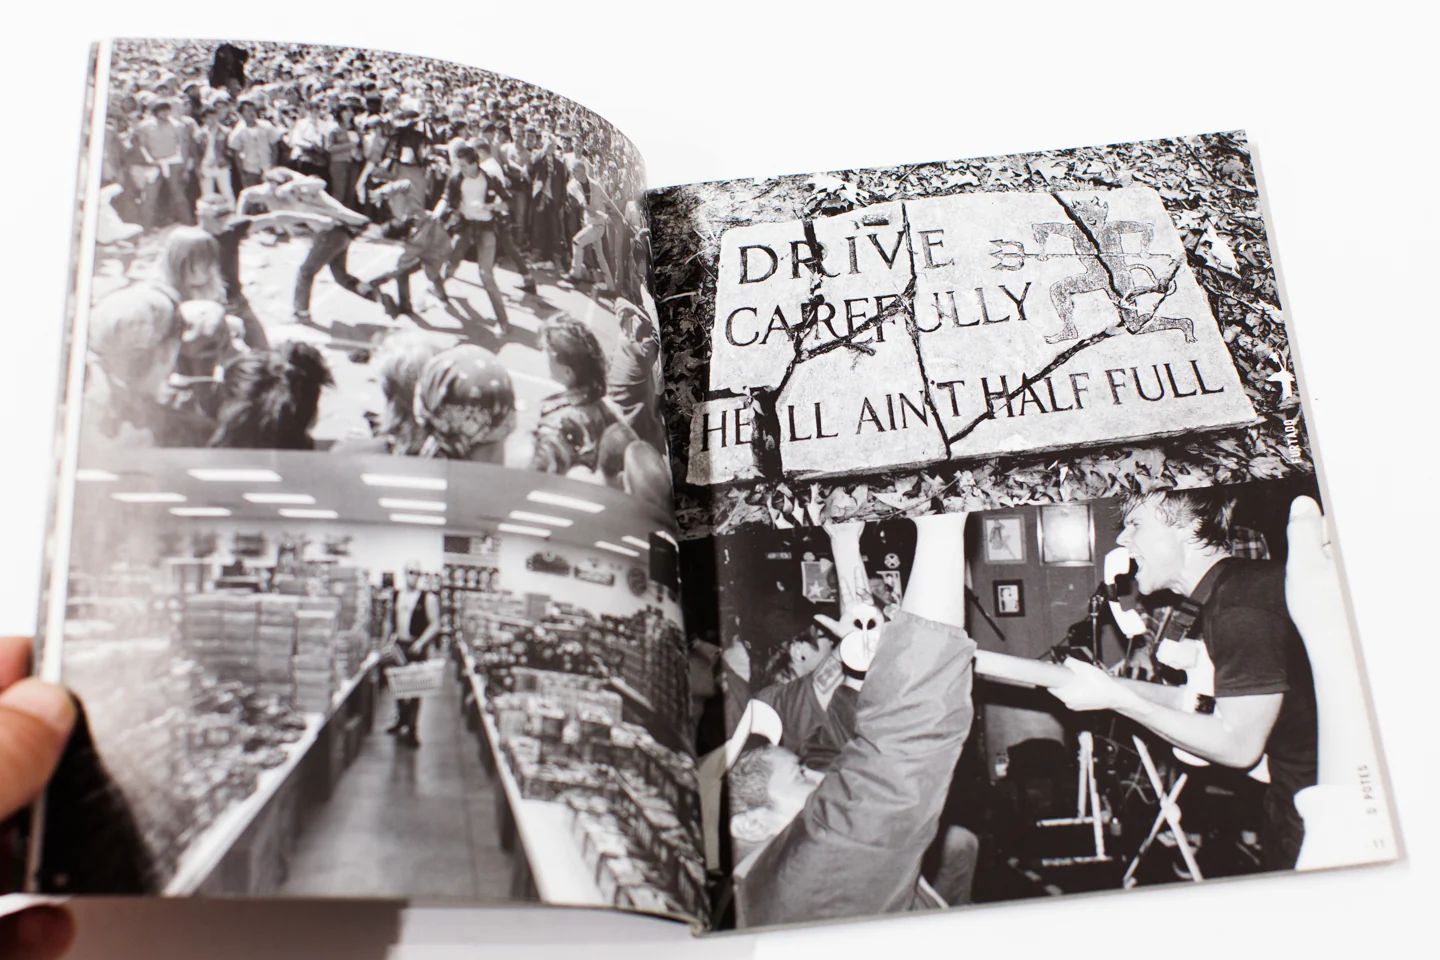 DRIVE
CAREFULLY
HELL AIN'T HALF FULL
FURTADO
D POTES